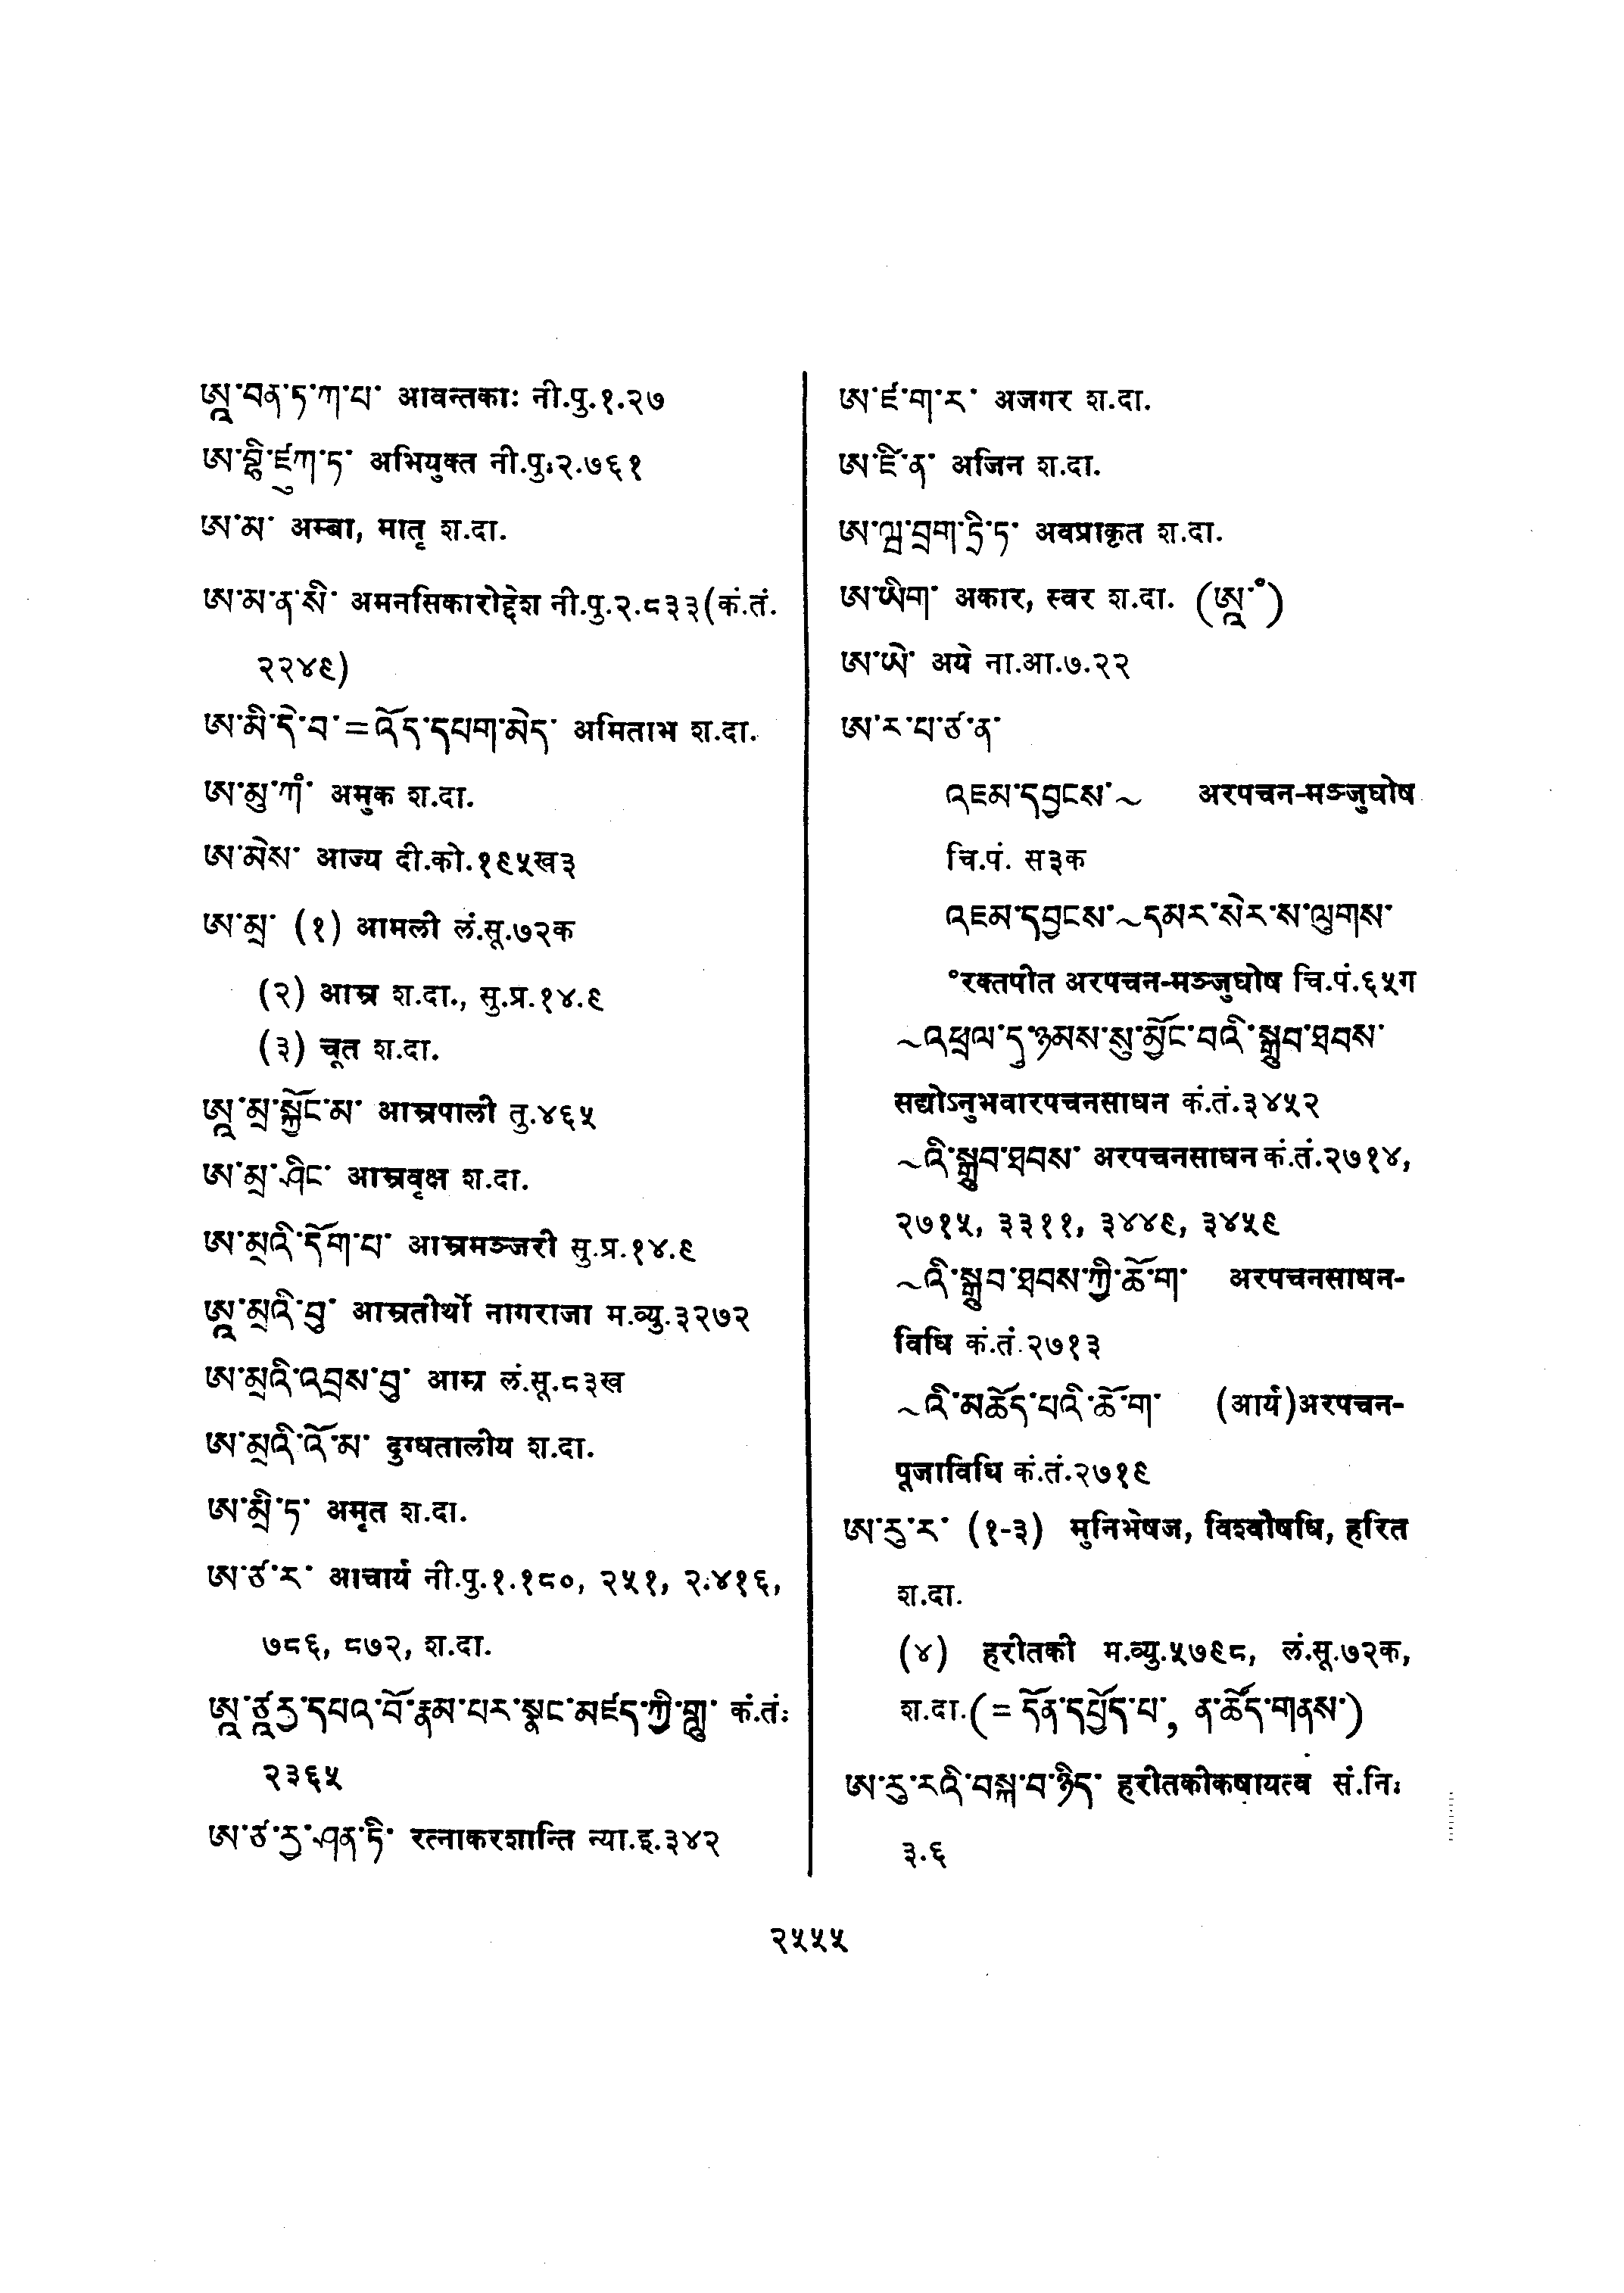 ཨཱ་བན་ཏ་ཀ་པ་ आवन्तकाः नी.पु.१.२७
ཨ་བྷི་ཛུཀ་ཏ་ अभियुक्त नी.पु.२.७६१
ཨ་མ་ अम्बा, मातृ श.दा.
ཨ་མ་ན་སི་ अमनसिकारोद्देश नी.पु.२.८३३(कं.तं.
२२४९)
ཨ་མི་དེ་བ་=འོད་དཔག་མེད་ अमिताभ श.दा.
ཨ་མུ་ཀཾ་ अमुक श.दा.
ཨ་མེས་ आज्य दी.को.१९५ख३
ཨ་མྲ་ (१) आमली लं.सू.७२क
(२) आम्र श.दा., सु.प्र.१४.९
(३) चूत श.दा.
ཨཱ་མྲ་སྐྱོང་མ་ आम्रपाली तु.४६५
ཨ་མྲ་ཤིང་ आम्रवृक्ष श.दा.
ཨ་མྲའི་དོག་པ་ आम्रमञ्जरी सु.प्र.१४.९
ཨཱ་མྲའི་བུ་ आम्रतीर्थो नागराजा म.व्यु.३२७२
ཨ་མྲའི་འབྲས་བུ་ आम्र लं.सू.८३ख
ཨ་མྲའི་འོ་མ་ दुग्धतालीय श.दा.
ཨ་མྲི་ཏ་ अमृत श.दा.
ཨ་ཙ་ར་ आचार्य नी.पु.१.१८०, २५१, २.४१६,
७८६, ८७२, श.दा.
ཨཱ་ཙཱརྱ་དཔའ་བོ་རྣམ་པར་སྣང་མཛད་ཀྱི་གླུ་ कं.तं.
२३६५
ཨ་ཙ་རྱ་ཤན་ཏི་ रत्नाकरशान्ति न्या.इ.३४२
ཨ་ཛ་ག་ར་ अजगर श.दा.
ཨ་ཛི་ན་ अजिन श.दा.
ཨ་ཝ་བྲག་ཏྲི་ཏ་ अवप्राकृत श.दा.
ཨ་ཡིག་ अकार, स्वर श.दा. (ཨཱ་ྃ)
ཨ་ཡེ་ अये ना.आ.७.२२
ཨ་ར་པ་ཙ་ན་
འཇམ་དབྱངས་~ अरपचन-मञ्जुघोष
चि.पं. स३क
འཇམ་དབྱངས་~དམར་སེར་ས་ལུགས་
°रक्तपीत अरपचन-मञ्जुघोष चि.पं.६५ग
~འཕྲལ་དུ་ཉམས་སུ་མྱོང་བའི་སྒྲུབ་ཐབས་
सद्योऽनुभवारपचनसाधन कं.तं.३४५२
~འི་སྒྲུབ་ཐབས་ अरपचनसाधन कं.तं.२७१४,
२७१५, ३३११, ३४४९, ३४५९
~འི་སྒྲུབ་ཐབས་ཀྱི་ཆོ་ག་ अरपचनसाधन-
विधि कं.तं.२७१३
~འི་མཆོད་པའི་ཆོ་ག་ (आर्य)अरपचन-
पूजाविधि कं.तं.२७१९
ཨ་རུ་ར་ (१-३) मुनिभेषज, विश्वौषधि, हरित
श.दा.
(४) हरीतकी म.व्यु.५७९८, लं.सू.७२क,
श.दा.(= དོན་དཔྱོད་པ་, ན་ཚོད་གནས་)
ཨ་རུ་རའི་བསྐ་བ་ཉིད་ हरीतकीकषायत्वं सं.नि.
३.६
२५५५